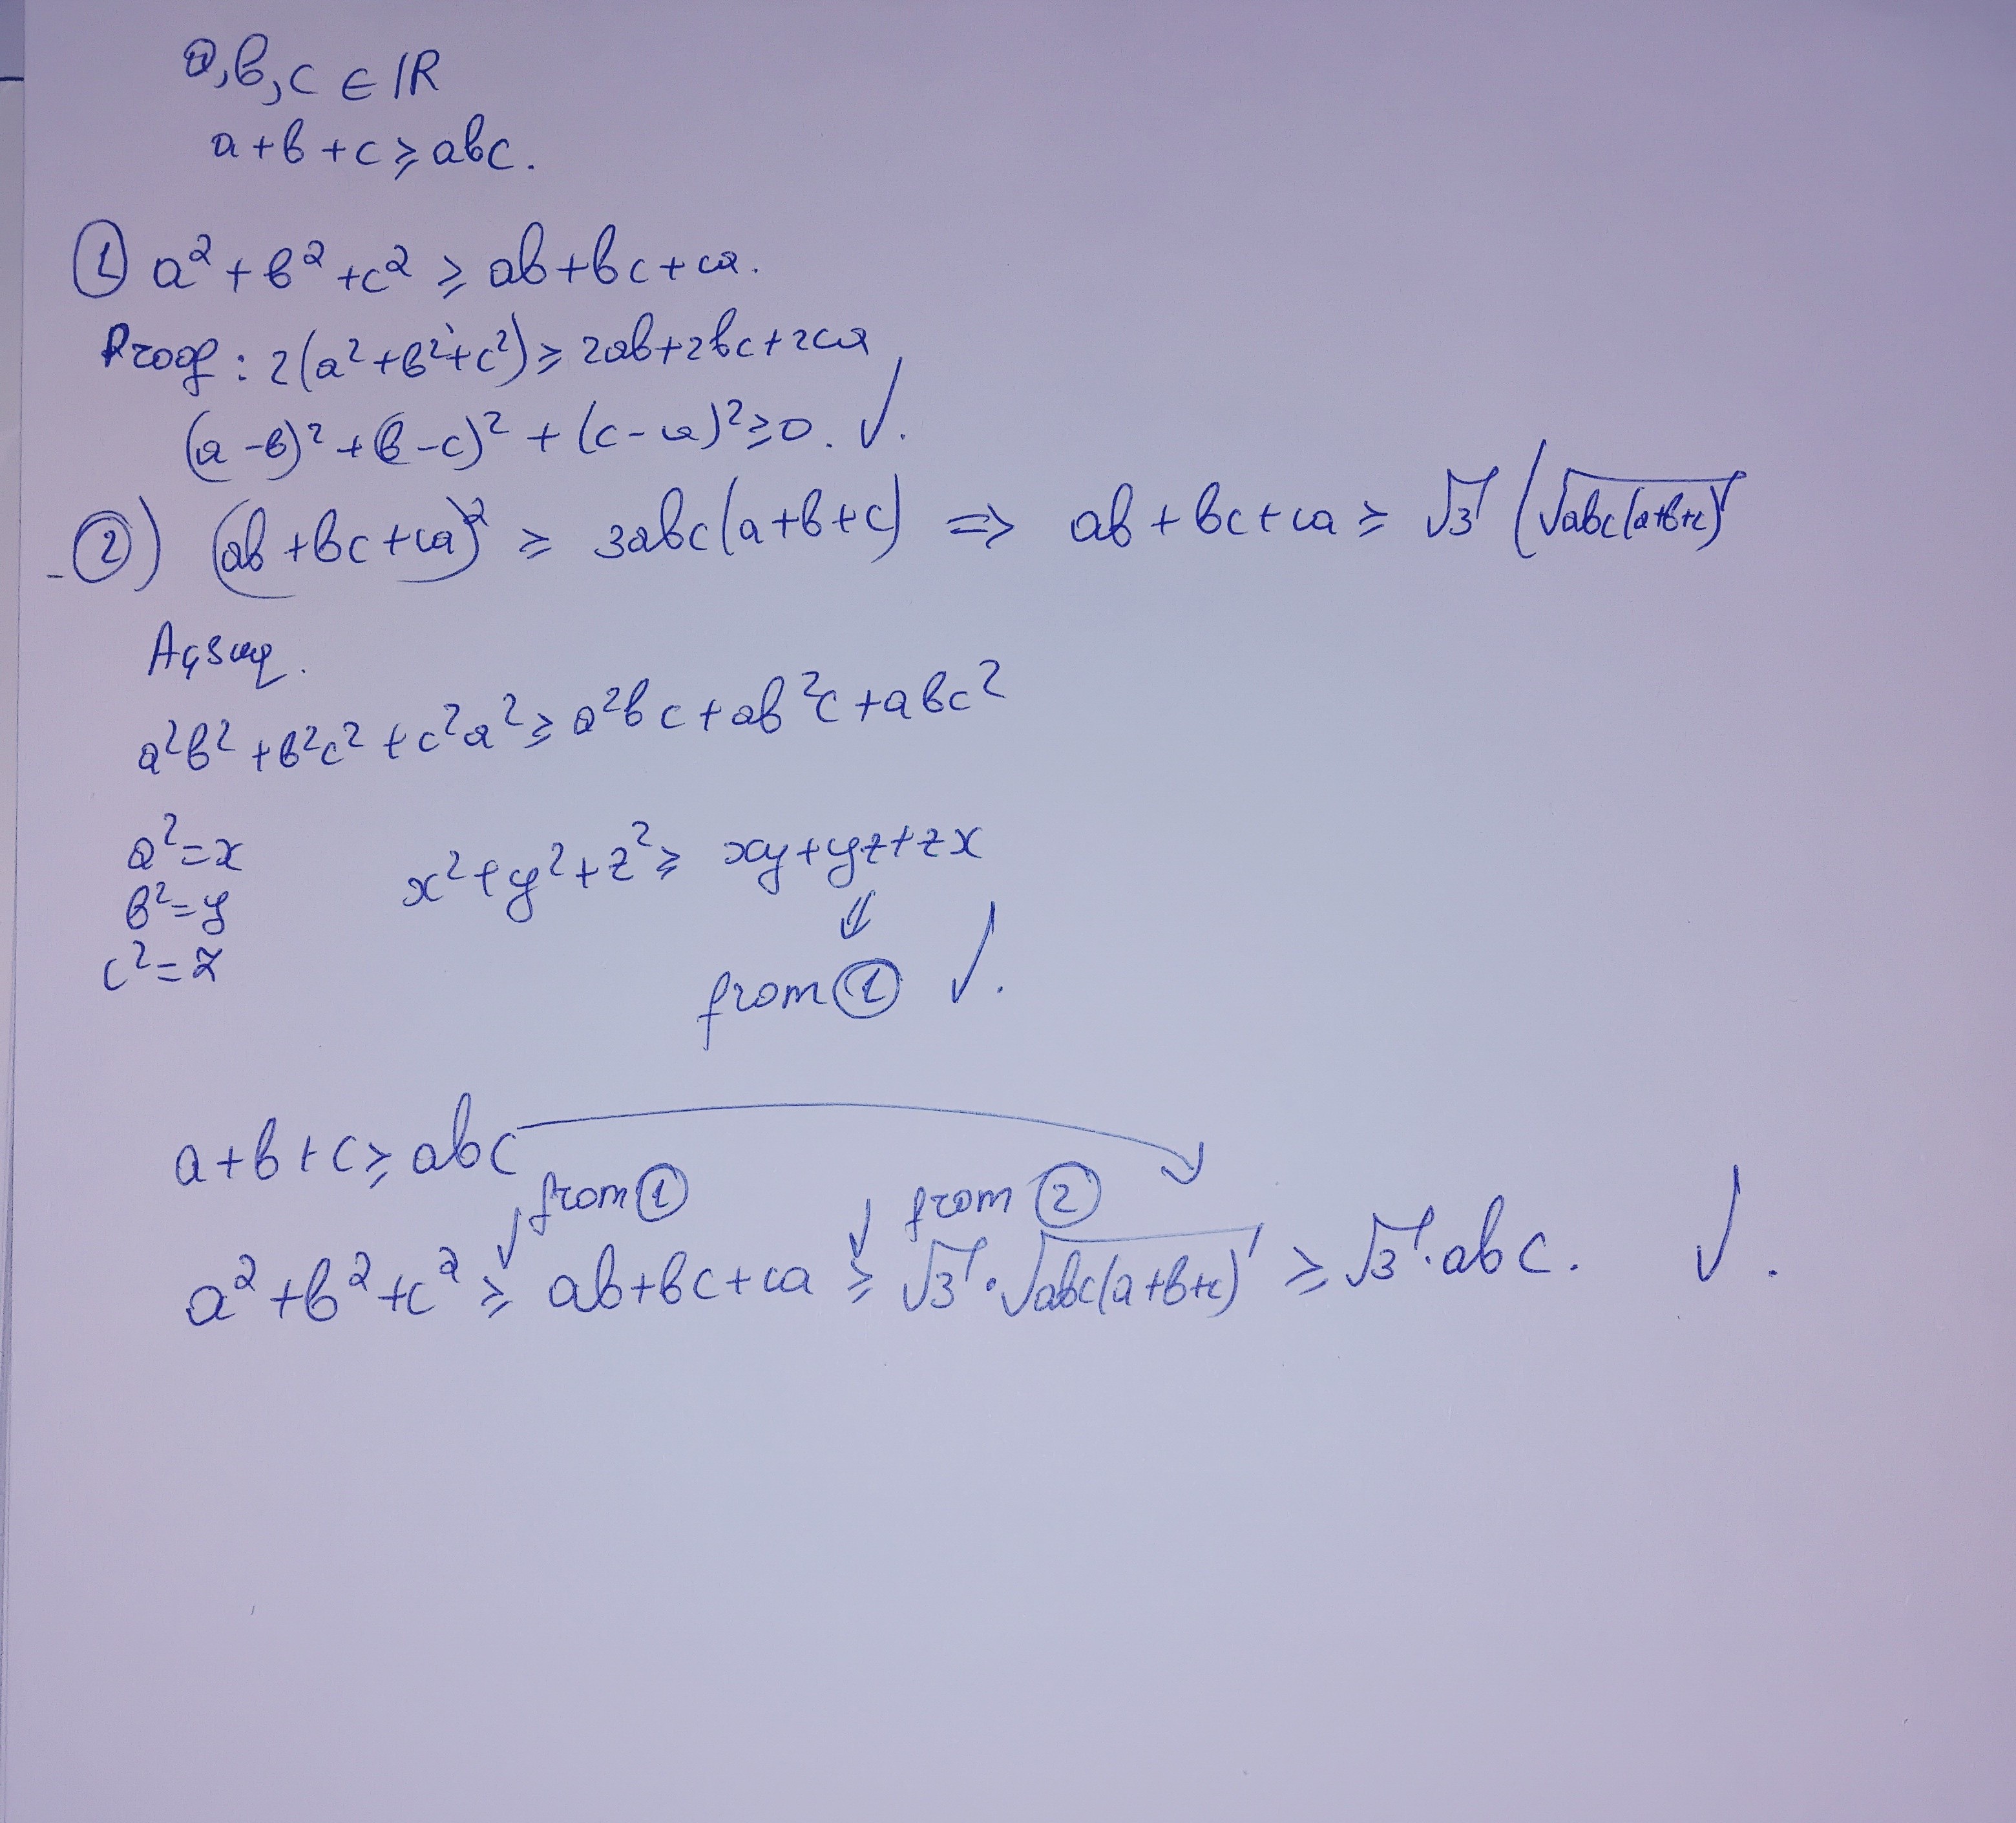 a, b, c ∈ ℝ
a + b + c ≥ abc.
① a² + b² + c² ≥ ab + bc + ca.
Proof: 2(a² + b² + c²) ≥ 2ab + 2bc + 2ca
(a - b)² + (b - c)² + (c - a)² ≥ 0. ✓.
②) (ab + bc + ca)² ≥ 3abc(a + b + c) ⇒ ab + bc + ca ≥ √3 (√abc(a+b+c)
a²b² + b²c² + c²a² ≥ a²bc + ab²c + abc²
a² = x
b² = y
c² = z
x² + y² + z² ≥ xy + yz + zx
⇓
from ① ✓.
a + b + c ≥ abc
from ① from ②
a² + b² + c² ≥ ab + bc + ca ≥ √3 · √abc(a+b+c) ≥ √3 · abc. ✓.